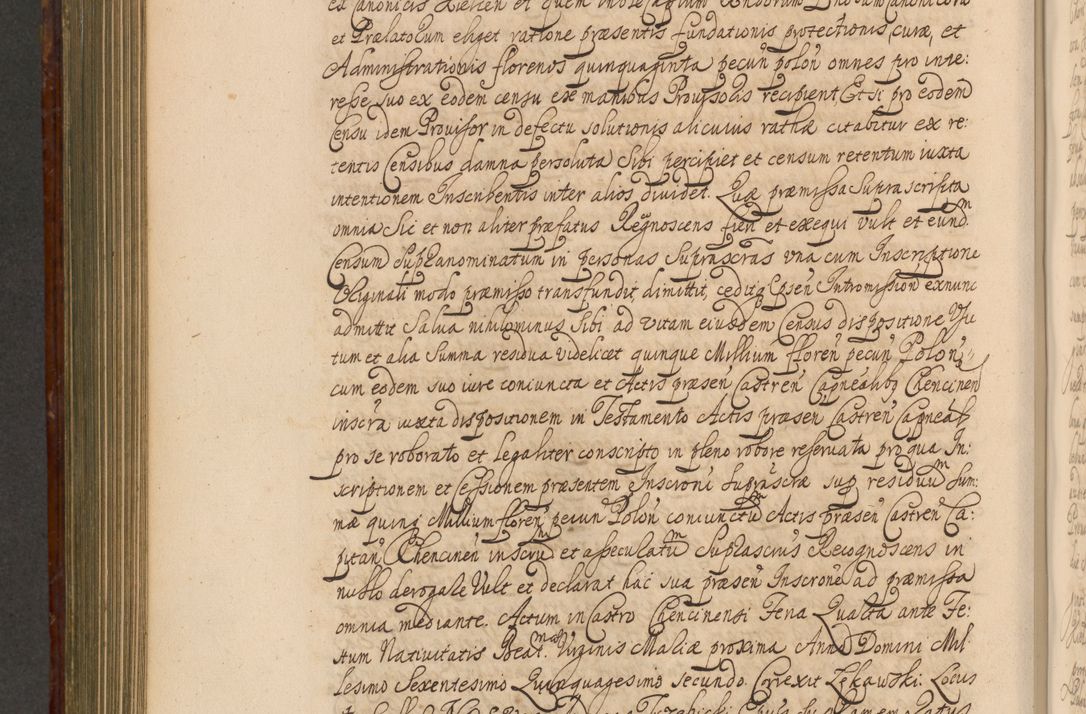 et Prælatorum eliget ratione præsentis fundationis protectionis, curæ, et
Administrationis florenos quinquaginta pecun̄ polon̄ omnes pro inte:
resse suo ex eodem censu ex manibus Prouisoris recipient Et si pro eodem
Censu idem Prouisor in defectu solutionis alicuius rathæ citabitur ex re:
tentis Censibus damna persoluta Sibi percipiet et censum retentum iuxta
intentionem Inscribentis inter alios diuidet. Quæ præmissa Suprascripta
omnia Sic et non aliter præfatus Regnoscens fieri et exequi vult et eundm
Censum Supranominatum in personas Suprascrās vna cum Inscriptione
Originali modo præmisso transfundit, dimittit, cedit, Intromission̄ exnunc
admittit Salua nihilominus Sibi ad vitam eiusdem Census dispositione
tum et alia Summa residua videlicet quinque Millium floren̄ pecun̄ Polon̄
cum eodem suo iure coniuncta et Actis præsen̄ Castren̄ Capneālibg Chencinen̄
inscrā iuxta dispositionem in Testamento Actis præsen̄ Castren̄ Capneāl
pro se roborato et legaliter conscripto in pleno robore reseruata pro qua In:
scriptionem et Cessionem præsentem Inscroni Suprascræ sup residuum Sum:
mæ quinq Millium floren̄ pecun̄ Polon̄ coniunctum Actis præsen̄ Castren̄ Ca:
pitan̄ Chencinen̄ inscrum et assecuratum Suprascrūs Recognoscens in
nullo derogare Vult et declarat hac sua præsen̄ Inscrone ad præmissa
omnia mediante. Actum in Castro Chencinensi Feria Quarta ante Fe:
stum Natiuitatis Beat. Virginis Mariæ proxima Anno Domini Mil
lesimo Sexentesimo Quinquagesimo secundo. Correxit Lękawski. Locus